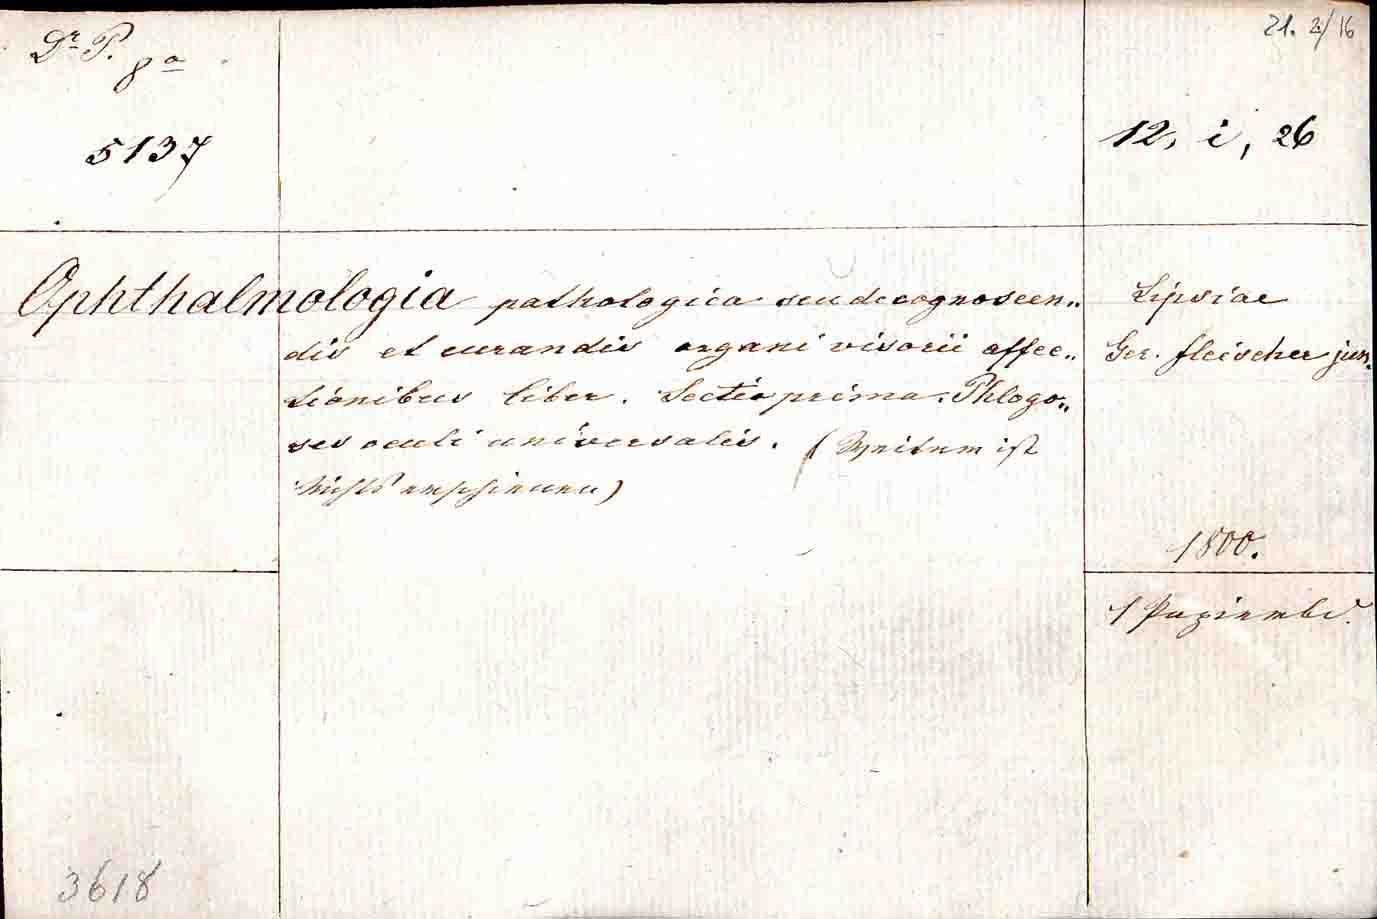 21. 2/16
Dr. P.
8a
5137
12, i, 26
Ophthalmologia pathologica seu de cognoscen„
dis et curandis organi visorii affec„
tionibus liber. Sectio prima. Phlogo„
ses oculi universalis. (Weiter ist
Nichts erschienen)
Lipsiae
Ger. Fleischer jun.
1800.
1 Papierbd.
3618